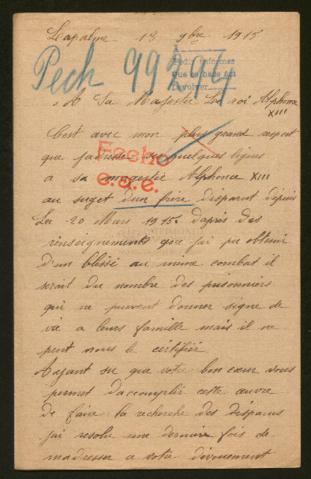 Lapalme 13 9bre 1915
Pech 99294
Pedir informes
que se base en
devolver
A Sa Majesté Le roi Alphonse
XIII
C'est avec mon plus grand respect
que j'adresse ces quelques lignes
a sa majesté Alphonse XIII
Fecho
e.o.e.
au sujet d'un frère disparut depuis
Le 20 Mars 1915. d'après des
renseignements que j'ai pu obtenir
d'un blessé au même combat il
serait du nombre des prisonniers
qui ne peuvent donner signe de
vie a leurs famille mais il ne
peut nous le certifier
Ayant su que votre bon cœur vous
permet d'accomplir cette œuvre
de faire la recherche des disparus
j'ai resolu une dernière fois de
m'adresser a votre dévouement